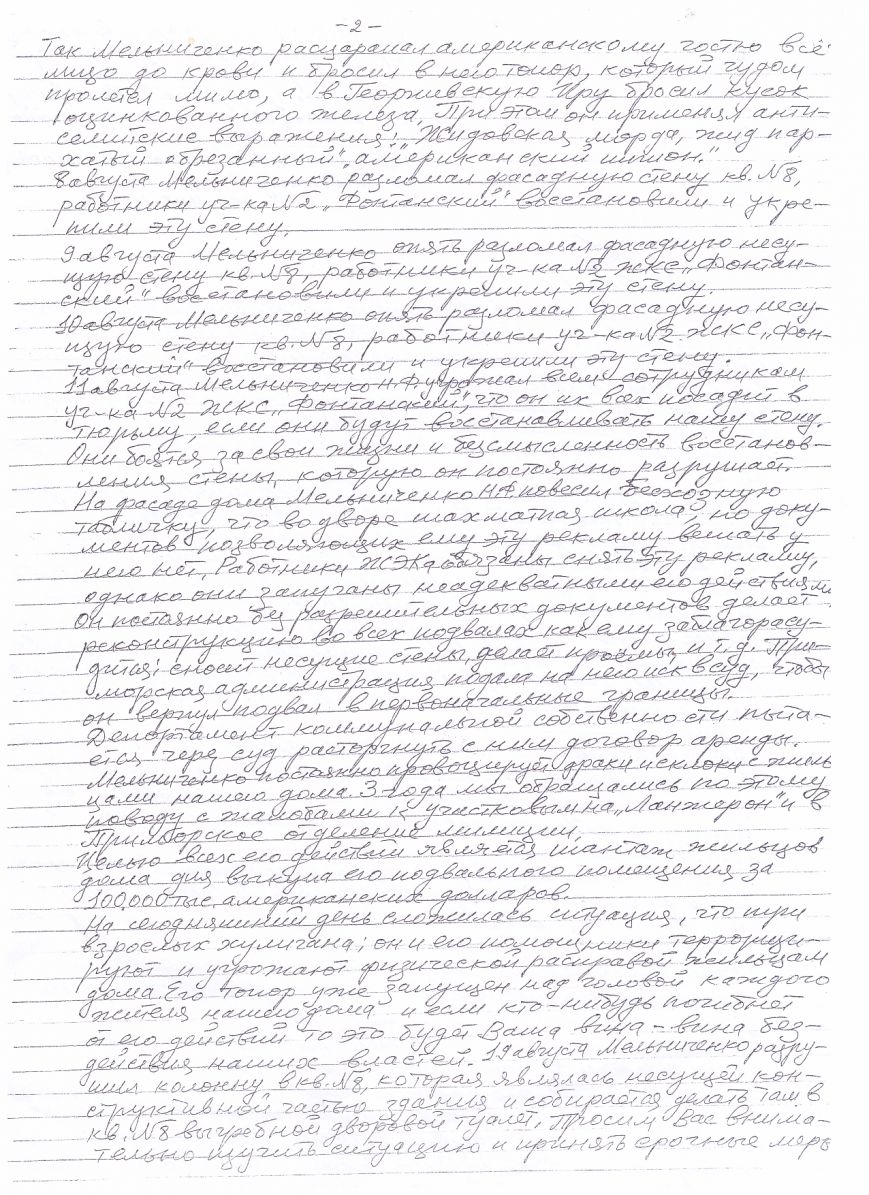 -2-
Так Мельниченко расцарапал американскому гостю всё
лицо до крови и бросил в него топор, который чудом
пролетел мимо, а в Георгиевскую Иру бросил кусок
оцинкованного железа. При этом он применял анти-
семитские выражения: „Жидовская морда, жид пар-
хатый обрезанный", „американский шпион."
8 августа Мельниченко разломал фасадную стену кв. №8,
работники уч-ка №2 „Фонтанский" восстановили и укре-
пили эту стену.
9 августа Мельниченко опять разломал фасадную несу-
щую стену кв. №8, работники уч-ка №2 ЖКС „Фонтан-
ский" восстановили и укрепили эту стену.
10 августа Мельниченко опять разломал фасадную несу-
щую стену кв. №8, работники уч-ка №2 ЖКС „Фон-
танский" восстановили и укрепили эту стену.
11 августа Мельниченко Н.Ф. угрожал всем сотрудникам
уч-ка №2 ЖКС „Фонтанский", что он их всех посадит в
тюрьму, если они будут восстанавливать нашу стену.
Они боятся за свои жизни и безсмысленность восстанов-
ления стены, которую он постоянно разрушает.
На фасаде дома Мельниченко Н.Ф. повесил безхозную
табличку, что во дворе шахматная школа, но доку-
ментов позволяющих ему эту рекламу вешать у
него нет. Работники ЖЭКа обязаны снять эту рекламу,
однако они запуганы неадекватными его действиями.
Он постоянно без разрешительных документов делает
реконструкцию во всех подвалах как ему заблагорассу-
дится: сносит несущие стены, делает проёмы и т.д. При-
морская администрация подала на него иск в суд, чтобы
он вернул подвал в первоначальные границы.
Департамент коммунальной собственности пыта-
ется через суд расторгнуть с ним договор аренды.
Мельниченко постоянно провоцирует драки и склоки с жиль-
цами нашего дома. 3 года мы обращались по этому
поводу с жалобами к участковым на „Ланжерон" и в
Приморское отделение милиции.
Целью всех его действий является шантаж жильцов
дома для выкупа его подвального помещения за
100.000 тыс. американских долларов.
На сегодняшний день сложилась ситуация, что три
взрослых хулигана: он и его помощники терроризи-
руют и угрожают физической расправой жильцам
дома. Его топор уже запущен над головой каждого
жителя нашего дома и если кто-нибудь погибнет
от его действий то это будет Ваша вина - вина без-
действия наших властей. 19 августа Мельниченко разру-
шил колонну в кв. №8, которая являлась несущей кон-
структивной частью здания и собирается делать там в
кв. №8 выгребной дворовой туалет. Просим Вас внима-
тельно изучить ситуацию и принять срочные меры